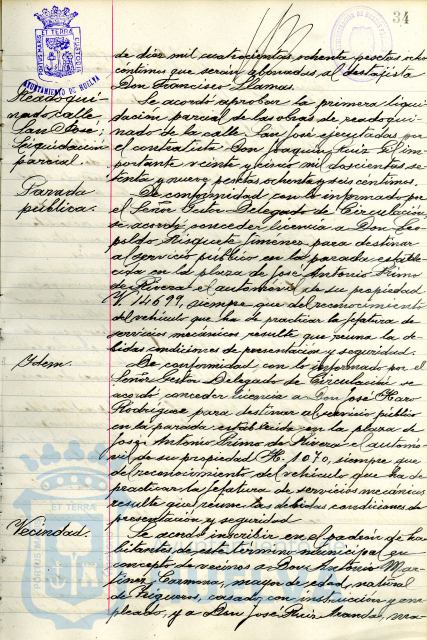 34
PORTUS MARIS ET TERRAE CUSTODIA
AYUNTAMIENTO DE HUELVA
de diez mil cuatrocientas ochenta pesetas ocho
céntimos que serán abonadas al destajista
Don Francisco Llamas.
Readoqui-
nado calle
San José;
Liquidación
parcial.
Se acordó aprobar la primera liqui-
dación parcial de las obras de readoqui-
nado de la calle San José ejecutadas por
el contratista Don Joaquín Ruiz im-
portante veinte y cinco mil doscientas se-
tenta y nueve pesetas ochenta y seis céntimos.
Parada
pública.
De conformidad con lo informado por
el Señor Gestor Delegado de Circulación,
se acordó conceder licencia a Don Leo-
poldo Risquete Jiménez para destinar
al servicio público en la parada estable-
cida en la plaza de José Antonio Primo
de Rivera el automóvil de su propiedad
14699, siempre que del reconocimiento
del vehículo que ha de practicar la jefatura de
servicios mecánicos resulte que reúna la de-
bidas condiciones de presentación y seguridad.
Idem.
De conformidad, con lo informado por el
Señor Gestor Delegado de Circulación se
acordó conceder licencia a Don José Haro
Rodríguez para destinar al servicio público
en la parada establecida en la plaza de
José Antonio Primo de Rivera el automó-
vil de su propiedad H. 1070, siempre que
del reconocimiento del vehículo que ha de
practicar la jefatura de servicios mecánicos
resulte que reune las debidas condiciones de
presentación y seguridad.
Vecindad.
Se acordó inscribir en el padrón de ha-
bitantes de este término municipal en
concepto de vecinos a Don Antonio Mar-
tínez Carmona, mayor de edad, natural
de Trigueros, casado, con instrucción y em-
pleado, y a Don José Ruiz Aranda, ma-